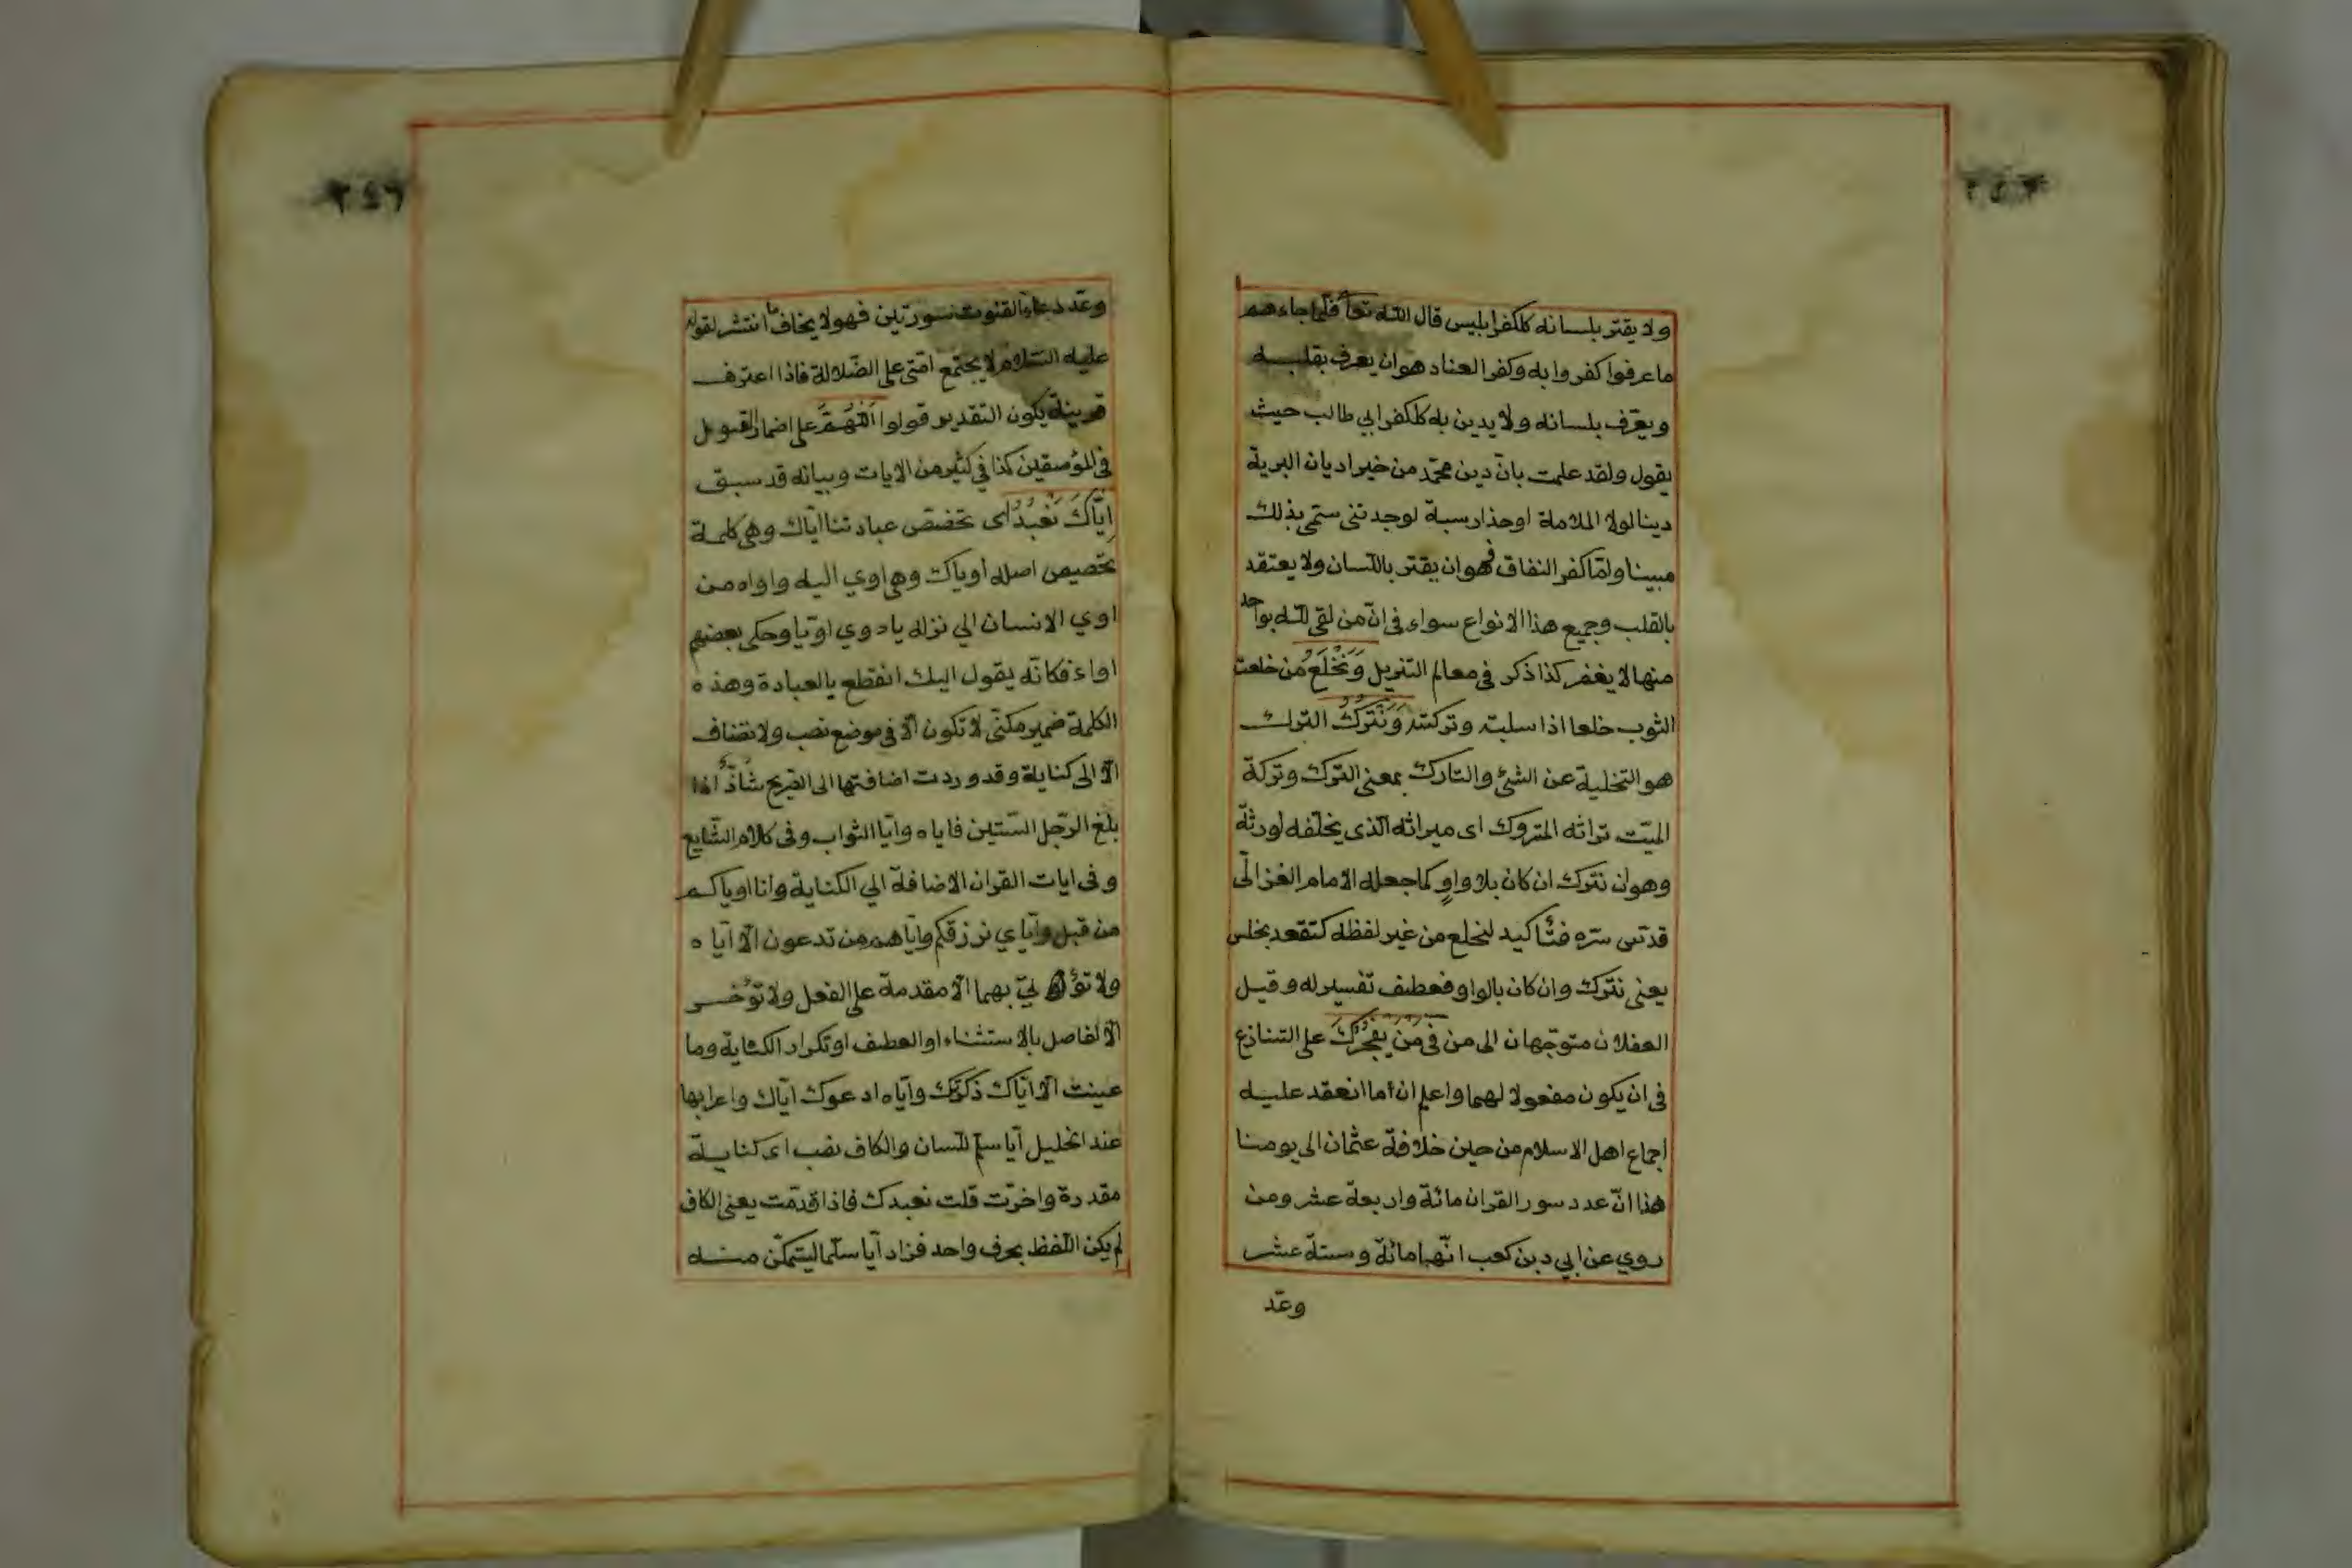 ولا يقتر بلسانه كلكفر ابليس قال الله تعا فلما جاءهم
ما عرفوا كفروا به وكفر العناد هو ان يعرف بقلبه
ويعرف بلسانه ولا يدين به كلكفر ابي طالب حيث
يقول ولقد علمت بان دين محمد من خير اديان البرية
دينا لولا الملامة او حذار سبة لوجدتنى ستمى بذلك
مبينا ولما كفر النفاق فهو ان يقتر باللسان ولا يعتقد
بالقلب وجميع هذا الانواع سواء فى ان من لقى لله بواحد
منها لا يغفر كذا ذكر فى معالم التنزيل وَنَخْلَعُ من خلعت
الثوب خلعا اذا سلبته وتركته وَنَتْرُكُ الترك
هو التخلية عن الشئ والتارك بمعنى الترك وتركة
الميت تراثه المتروك اى ميراثه الذى يخلفه لورثة
وهو ان نترك ان كان بلا واو كما جعله الامام الغزالى
قدس سره فتأكيد لنخلع من غير لفظه كتقعد بخلس
يعنى نترك وان كان بالواو فعطف تفسير له وقيل
العفلان متوجهان الى من فى مَن يَفْجُرُكَ على التنازع
فى ان يكون مفعولا لهما واعلم ان اما انعقد عليه
اجماع اهل الاسلام من حين خلافة عثمان الى يومنا
هذا ان عدد سور القران مائة واربعة عشر ومن
روي عن ابي دبن كعب انها مائة وستة عشر
وعد
٢٤٦
وعد دعاء القنوت سورتين فهو لا يخاف ما انتشر لقوله
عليه السلام لا يجتمع امتى على الضلالة فاذا اعترف
قرينة يكون التقدير قولوا اللّهُمَّ على اضمار القول
فى كذا فى كثير من الايات وبيانه قد سبق
اِيّاكَ نَعْبُدُ اى تخصص عبادتنا اياك وهى كلمة
تخصيص اصله اوياك وهى اوي اليه واواه من
اوي الانسان الي نزله يادوي اويا وحكى بعضهم
اواء فكانه يقول اليك انقطع بالعبادة وهذه
الكلمة ضمير مكنى لا تكون الا فى موضع نصب ولا تضاف
الا الى كناية وقد وردت اضافتها الى الصريح شاذ اذا
بلغ الرجل الستين فاياه وايا الثواب وفى كلام الشايع
وفى ايات القران الاضافة الي الكناية وانا اوياكم
من قبل واياي نرزقكم واياهم من تدعون الا اياه
ولا بهما الا مقدمة على الفعل ولا تؤخر
الا لفاصل بالاستثناء او العطف او تكرار الكناية وما
عينت الا اياك ذكرتك واياه ادعوك اياك واعرابها
عند الخليل ايا سم للسان والكاف نصب اى كناية
مقدرة واخرت قلت نعبدك فاذا قدمت يعنى الكاف
لم يكن اللفظ بحرف واحد فزاد ايا سلما ليتمكن منه